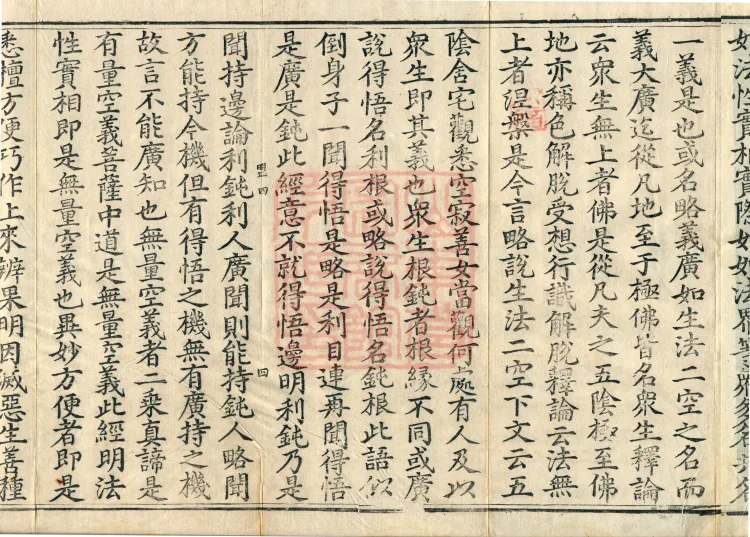 如法性實相實際如如法界等
一義是也或名略義廣如生法二空之名而
義大廣迄從凡地至于極佛皆名眾生釋論
云眾生無上者佛是從凡夫之五陰極至佛
地亦稱色解脫受想行識解脫釋論云法無
上者涅槃是今言略說生法二空下文云五
陰舍宅觀悉空寂善女當觀何處有人及以
眾生即其義也眾生根鈍者根緣不同或廣
說得悟名利根或略說得悟名鈍根此語似
倒身子一聞得悟是略是利目連再聞得悟
是廣是鈍此經意不就得悟邊明利鈍乃是
四 四
聞持邊論利鈍利人廣聞則能持鈍人略聞
方能持今機但有得悟之機無有廣持之機
故言不能廣知也無量空義者二乘真諦是
有量空義菩薩中道是無量空義此經明法
性實相即是無量空義也異妙方便者即是
悉檀方便巧作上來辨果明因滅惡生善種